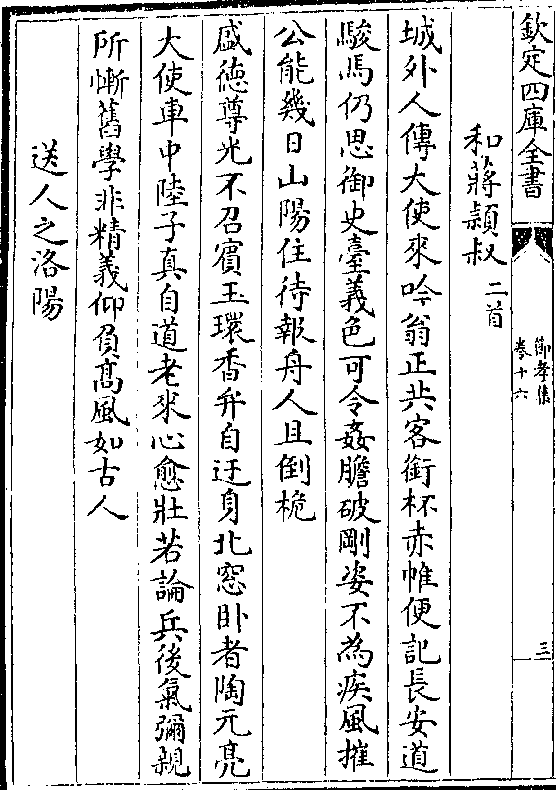 欽定四庫全書
節孝集
卷十六
三
和蔣穎叔二首
城外人傳大使來吟翁正共客銜杯赤帷便記長安道
駿馬仍思御史臺義色可令姦膽破剛姿不為疾風摧
公能幾日山陽住待報舟人且倒桅
盛德尊光不召賓玉環香弁自迂身北窓卧者陶元亮
大使車中陸子真自道老來心愈壯若論兵後氣彌親
所慚舊學非精義仰負髙風如古人
送人之洛陽